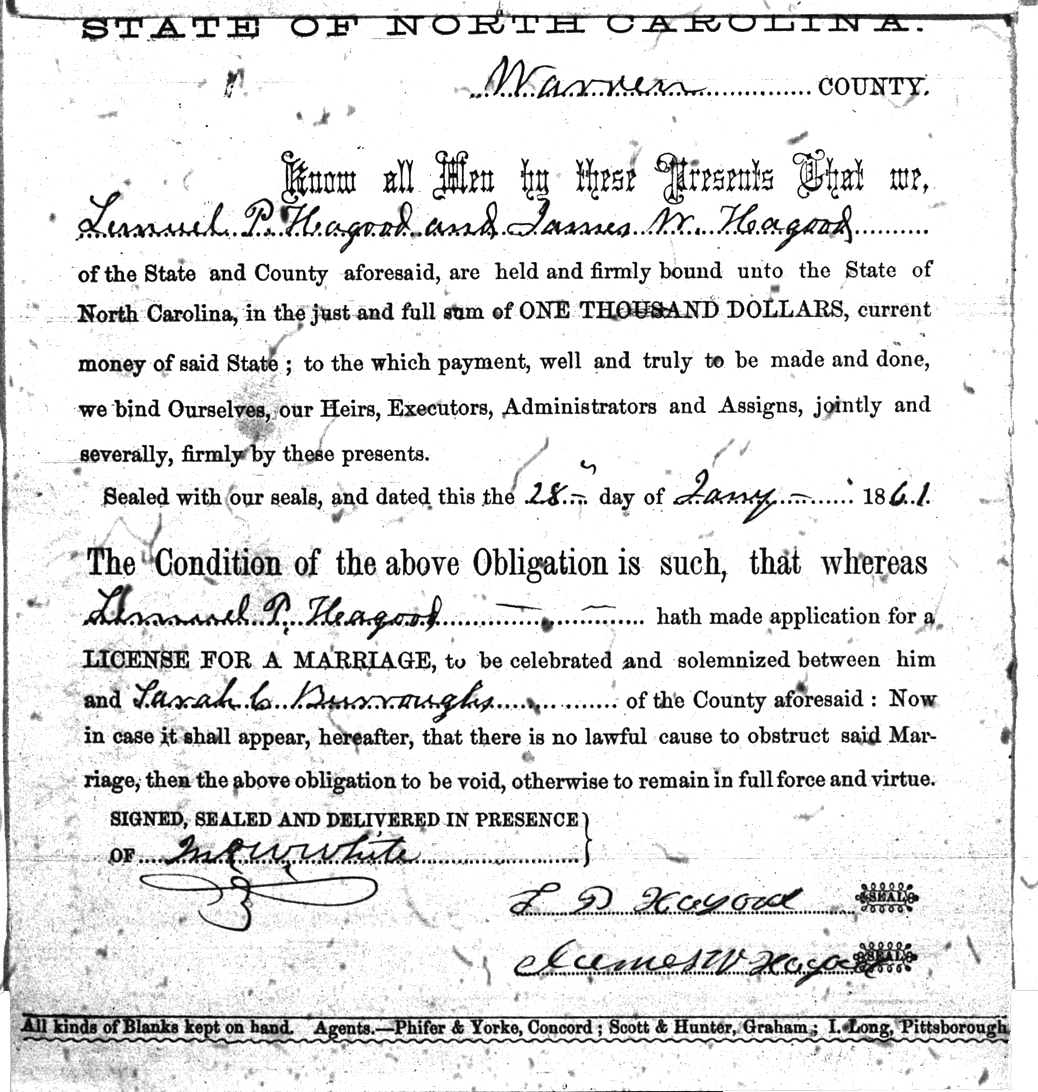 STATE OF NORTH CAROLINA.
Warren COUNTY.
Know all Men by these Presents That we,
Lemuel P. Heagood and James W. Heagood
of the State and County aforesaid, are held and firmly bound unto the State of
North Carolina, in the just and full sum of ONE THOUSAND DOLLARS, current
money of said State ; to the which payment, well and truly to be made and done,
we bind Ourselves, our Heirs, Executors, Administrators and Assigns, jointly and
severally, firmly by these presents.
Sealed with our seals, and dated this the 28 day of Jany 1861.
The Condition of the above Obligation is such, that whereas
Lemuel P. Heagood hath made application for a
LICENSE FOR A MARRIAGE, to be celebrated and solemnized between him
and Sarah C Burroughs of the County aforesaid : Now
in case it shall appear, hereafter, that there is no lawful cause to obstruct said Mar-
riage, then the above obligation to be void, otherwise to remain in full force and virtue.
SIGNED, SEALED AND DELIVERED IN PRESENCE
OF W White
L P Hagood SEAL
James W Hagood SEAL
All kinds of Blanks kept on hand. Agents.—Phifer & Yorke, Concord ; Scott & Hunter, Graham ; I. Long, Pittsborough